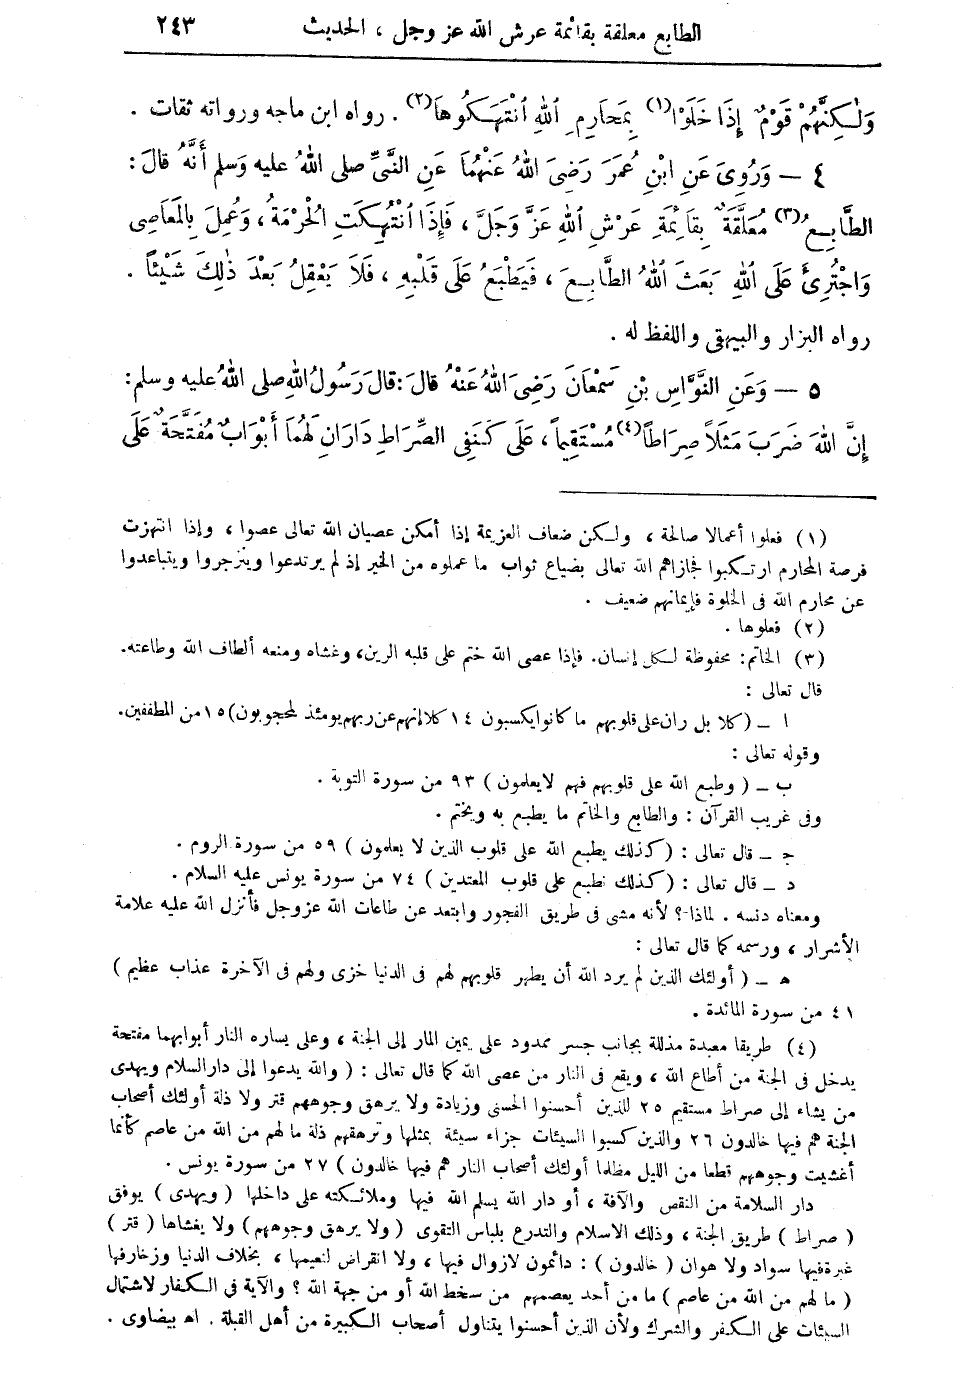 الطابع معلقة بقائمة عرش الله عز وجل ، الحديث ٢٤٣
وَلٰكِنَّهُمْ قَوْمٌ إِذَا خَلَوْا (١) بِمَحَارِمِ اللهِ انْتَهَكُوهَا (٢) . رواه ابن ماجه ورواته ثقات .
٤ — وَرُوِىَ عَنِ ابْنِ عُمَرَ رَضِىَ اللهُ عَنْهُمَا عَنِ النَّبِىِّ صلى اللهُ عليه وَسلم أَنَّهُ قالَ :
الطَّابِعُ (٣) مُعَلَّقَةٌ بِقَائِمَةِ عَرْشِ اللهِ عَزَّ وَجَلَّ ، فَإِذَا انْتُهِكَتِ الْحُرْمَةُ ، وَعُمِلَ بِالْمَعَاصِى
وَاجْتُرِئَ عَلَى اللهِ بَعَثَ اللهُ الطَّابِعَ ، فَيَطْبَعُ عَلَى قَلْبِهِ ، فَلَا يَعْقِلُ بَعْدَ ذٰلِكَ شَيْئاً .
رواه البزار والبيهقى واللفظ له .
٥ — وَعَنِ النَّوَّاسِ بْنِ سَمْعَانَ رَضِىَ اللهُ عَنْهُ قالَ : قالَ رَسُولُ اللهِ صلى اللهُ عليه وسلم :
إِنَّ اللهَ ضَرَبَ مَثَلاً صِرَاطاً (٤) مُسْتَقِيماً ، عَلَى كَنَفِى الصِّرَاطِ دَارَانِ لَهُمَا أَبْوَابٌ مُفَتَّحَةٌ عَلَى
(١) فعلوا أعمالا صالحة ، ولكن ضعاف العزيمة إذا أمكن عصيان الله تعالى عصوا ، وإذا انتهزت
فرصة المحارم ارتكبوا فجازاهم الله تعالى بضياع ثواب ما عملوه من الخير إذ لم يرتدعوا وينزجروا ويتباعدوا
عن محارم الله فى الخلوة فإيمانهم ضعيف .
(٢) فعلوها .
(٣) الخاتم : محفوظة لكل إنسان. فإذا عصى الله ختم على قلبه الرين، وغشاه ومنعه ألطاف الله وطاعته.
قال تعالى :
ا — (كلا بل ران على قلوبهم ما كانوا يكسبون ١٤ كلا إنهم عن ربهم يومئذ لمحجوبون) ١٥ من المطففين.
وقوله تعالى :
ب — ( وطبع الله على قلوبهم فهم لايعلمون ) ٩٣ من سورة التوبة .
وفى غريب القرآن : والطابع والخاتم ما يطبع به ويختم .
ج — قال تعالى : (كذلك يطبع الله على قلوب الذين لا يعلمون ) ٥٩ من سورة الروم .
د — قال تعالى : (كذلك نطبع على قلوب المعتدين ) ٧٤ من سورة يونس عليه السلام .
ومعناه دنسه . لماذا ؟ لأنه مشى فى طريق الفجور وابتعد عن طاعات الله عز وجل فأنزل الله عليه علامة
الأشرار ، ورسمه كما قال تعالى :
هـ — ( أولئك الذين لم يرد الله أن يطهر قلوبهم لهم فى الدنيا خزى ولهم فى الآخرة عذاب عظيم )
٤١ من سورة المائدة .
(٤) طريقا معبدة مذللة بجانب جسر ممدود على يمين المار إلى الجنة ، وعلى يساره النار أبوابهما مفتحة
يدخل فى الجنة من أطاع الله ، ويقع فى النار من عصى الله كما قال تعالى : ( والله يدعوا إلى دار السلام ويهدى
من يشاء إلى صراط مستقيم ٢٥ للذين أحسنوا الحسنى وزيادة ولا يرهق وجوههم قتر ولا ذلة أولئك أصحاب
الجنة هم فيها خالدون ٢٦ والذين كسبوا السيئات جزاء سيئة بمثلها وترهقهم ذلة ما لهم من الله من عاصم كأنما
أغشيت وجوههم قطعا من الليل مظلما أولئك أصحاب النار هم فيها خالدون ) ٢٧ من سورة يونس .
دار السلامة من النقص والآفة ، أو دار الله يسلم الله فيها وملائكته على داخلها ( ويهدى ) يوفق
( صراط ) طريق الجنة ، وذلك الاسلام والتدرع بلباس التقوى ( ولا يرهق وجوههم ) ولا يغشاها ( قتر )
غبرة فيها سواد ولا هوان ( خالدون ) : دائمون لازوال فيها ، ولا انقراض لنعيمها ، بخلاف الدنيا وزخارفها
( ما لهم من الله من عاصم ) ما من أحد يعصمهم من سخط الله أو من جهة الله ؟ والآية فى الكفار لاشتمال
السيئات على الكفر والشرك ولأن الذين أحسنوا يتناول أصحاب الكبيرة من أهل القبلة . اهـ بيضاوى .